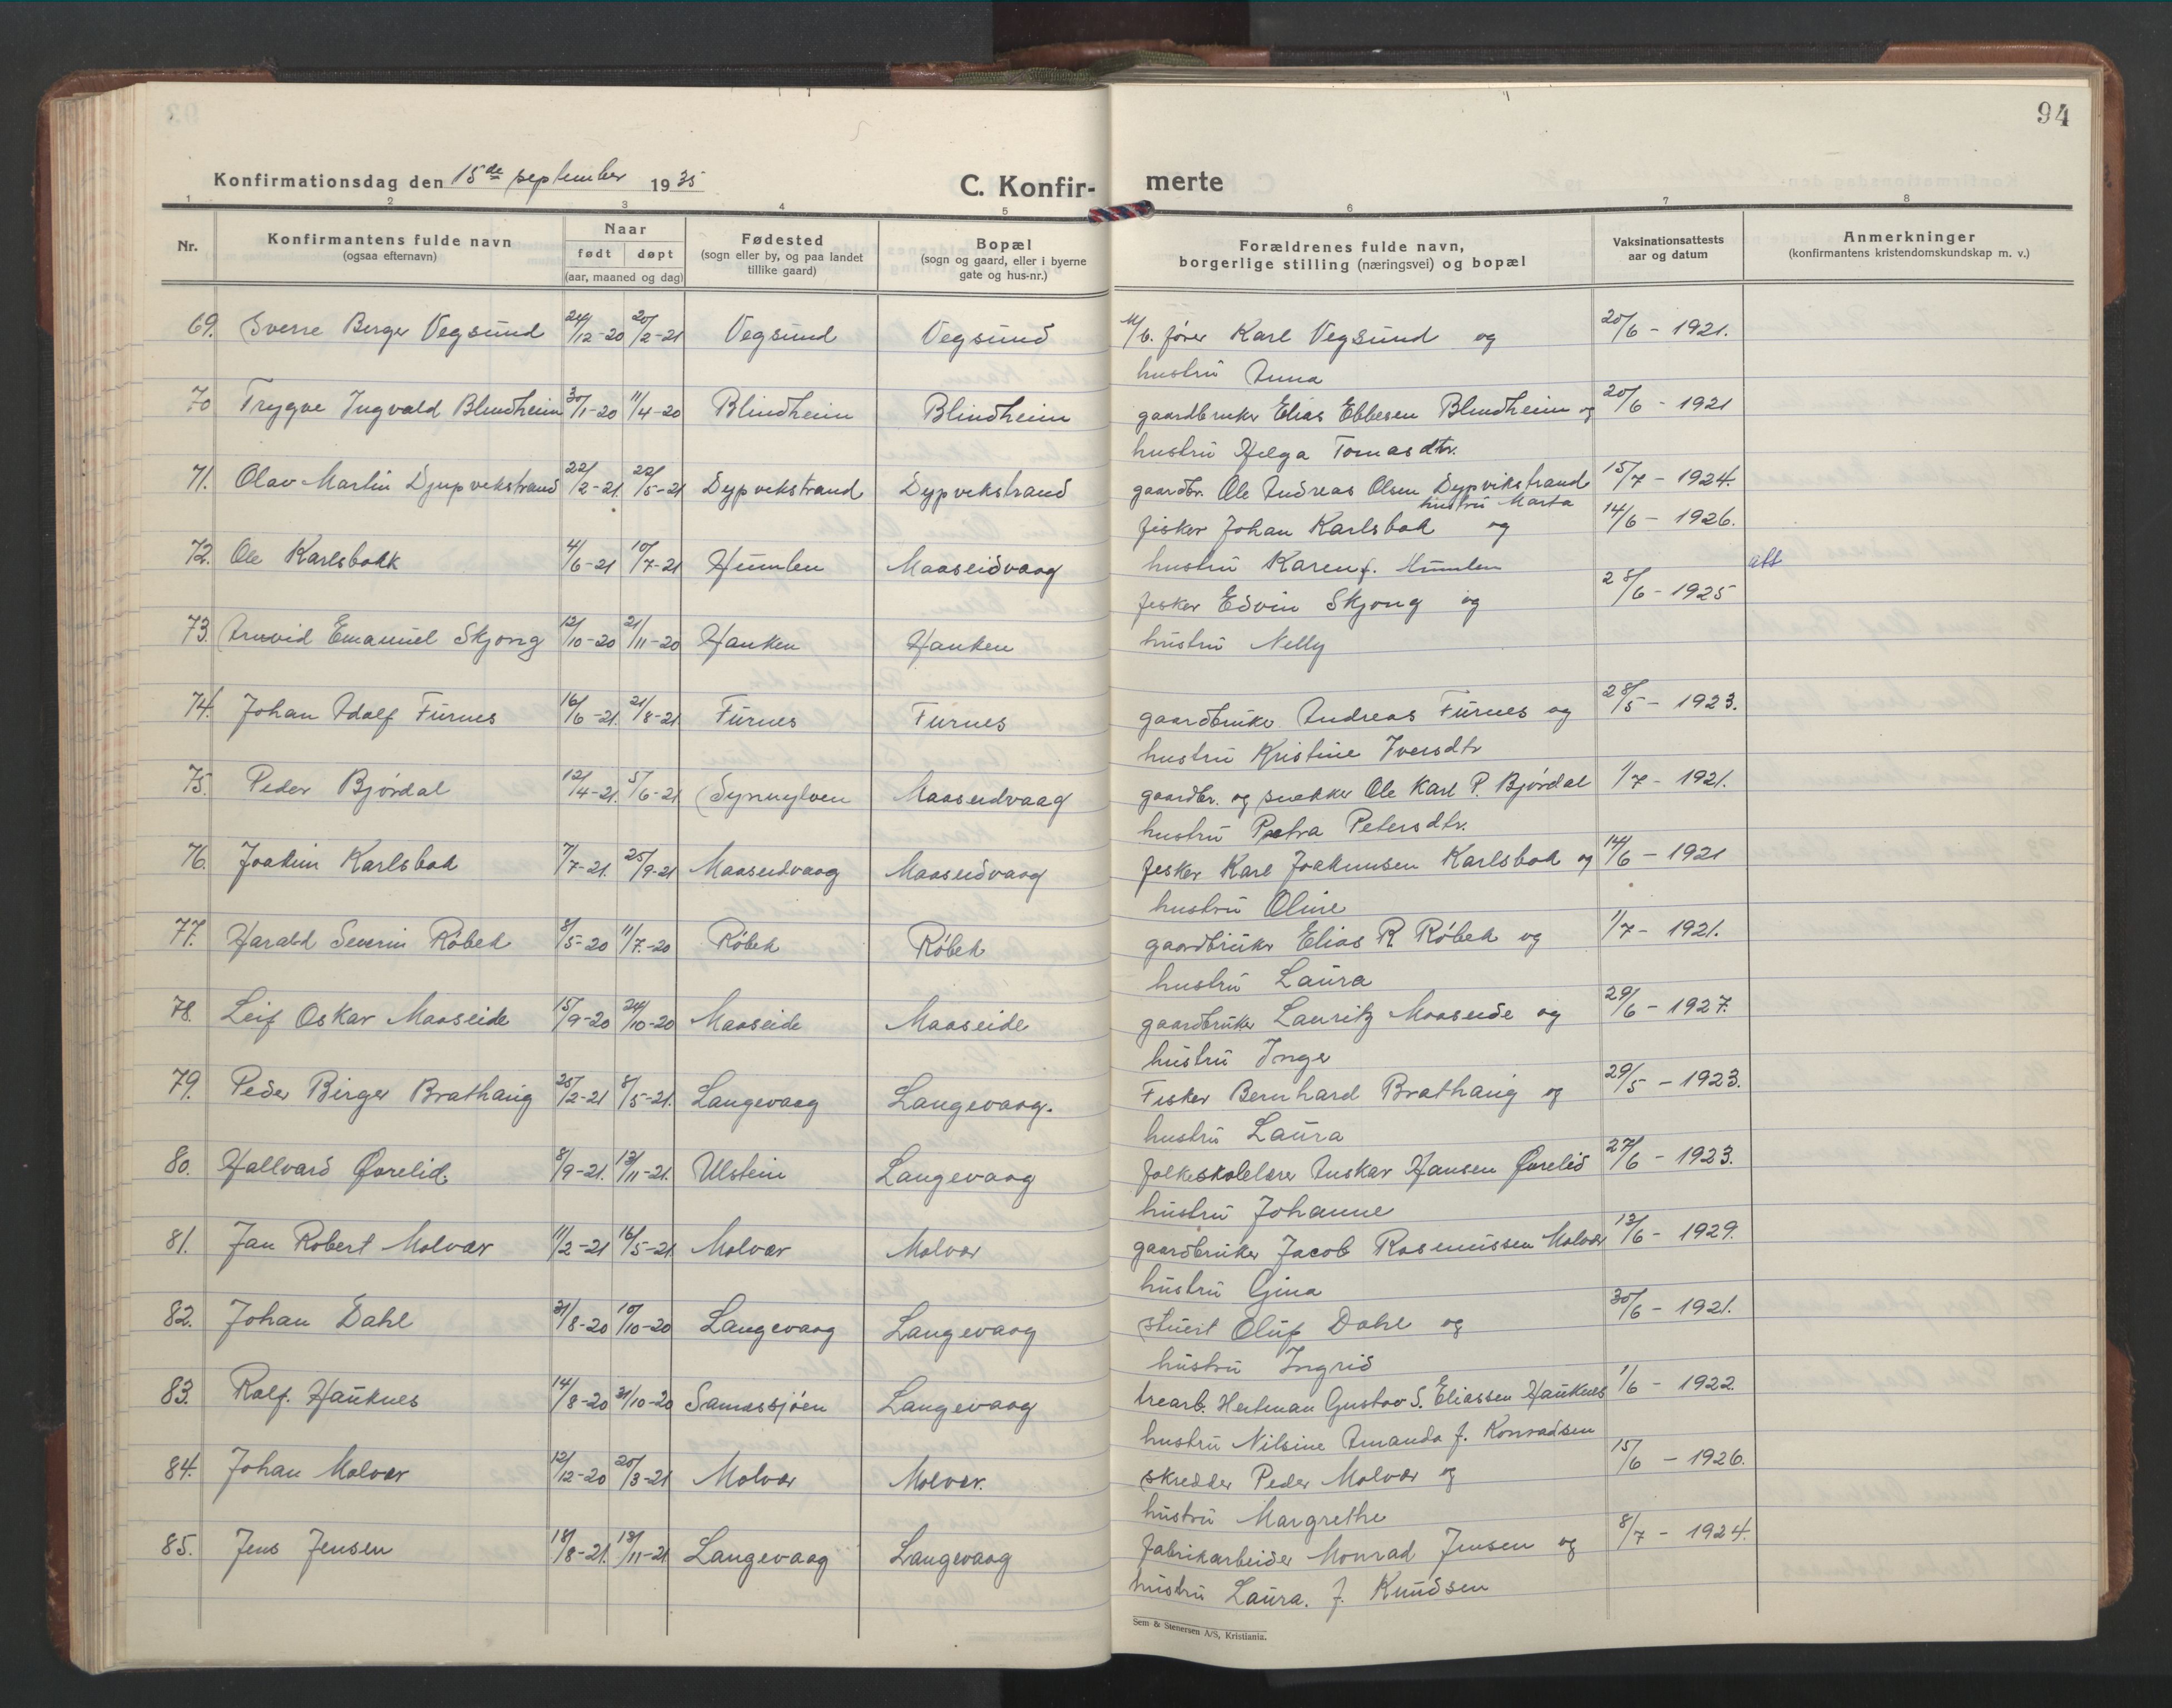 94
Konfirmationsdag den 15de september 1935
C. Konfir- merte
1 2 3 4 5 6 7 8
Nr.
Konfirmantens fulde navn
(ogsaa efternavn)
Naar
født døpt
(aar, maaned og dag)
Fødested
(sogn eller by, og paa landet
tillike gaard)
Bopæl
(sogn og gaard, eller i byerne
gate og hus-nr.)
Forældrenes fulde navn,
borgerlige stilling (næringsvei) og bopæl
Vaksinationsattests
aar og datum
Anmerkninger
(konfirmantens kristendomskundskap m. v.)
69. Sverre Berger Vegsund 24/12-20 20/2-21 Vegsund Vegsund M/b. fører Karl Vegsund og 20/6 - 1921.
hustru Anna
70 Trygve Ingvald Blindheim 30/1-20 11/4-20 Blindheim Blindheim gaardbruker Elias Ebbesen Blindheim og 20/6 - 1921
hustru Helga Tomasdtr.
71. Olav Martin Djupvikstrand 22/2-21. 22/5-21 Dypvikstrand Dypvikstrand gaardbr. Ole Andreas Olsen Dypvikstrand 15/7 - 1924.
hustru Marta
72. Ole Karlsbakk 4/6-21 10/7-21 Humlen Maaseidvaag fisker Johan Karlsbak og 14/6 - 1926.
hustru Karen f. Humlen att
73. Arnvid Emanuel Skjong 12/10-20 21/11-20 Hanken Hanken fisker Edvin Skjong og 28/6 - 1925
hustru Nelly
74. Johan Adolf Furnes 16/6-21. 21/8-21. Furnes Furnes gaardbruker Andreas Furnes og 28/5 - 1923.
hustru Kristine Iversdtr
75. Peder Bjørdal 12/4-21. 5/6-21 Synnylven Maaseidvaag gaardbr. og snekker Ole Karl P. Bjørdal 1/7 - 1921.
hustru Petra Petersdtr.
76. Joakim Karlsbak 7/7-21. 25/9-21 Maaseidvaag Maaseidvaag fisker Karl Joakimsen Karlsbak og 14/6 - 1921
hustru Oline
77. Harald Severin Røbek 8/5-20 11/7-20 Røbek Røbek gaardbruker Elias R. Røbek og 1/7 - 1921.
hustru Laura
78. Leif Oskar Maaseide 15/9-20 24/10-20 Maaseide Maaseide gaardbruker Lauritz Maaseide og 29/6 - 1927.
hustru Inger
79. Peder Birger Brathaug 25/2-21 8/5-21. Langevaag Langevaag. Fisker Bernhard Brathaug og 29/5 - 1923.
hustru Laura
80. Hallvard Øvrelid. 8/9-21. 13/11-21. Ulstein Langevaag folkeskolelærer Anskar Hansen Øvrelid 27/6 - 1923.
hustru Johanne
81. Jan Robert Molvær 11/2-21 16/5-21. Molvær Molvær gaardbruker Jacob Rasmussen Molvær 13/6 - 1929.
hustru Gina
82. Johan Dahl 31/8-20 10/10-20 Langevaag Langevaag stuert Oluf Dahl og 30/6 - 1921.
hustru Ingrid
83. Ralf. Hauknes 14/8-20 31/10-20 Sannessjøen Langevaag trearb. Herlman Gustav S. Eliassen Hauknes 1/6 - 1922.
hustru Nilsine Amanda f. Konradsen
84. Johan Molvær 12/12-20 20/3-21 Molvær Molvær. skredder Peder Molvær og 15/6 - 1926.
hustru Margrethe
85. Jens Jensen 18/8-21. 13/11-21 Langevaag Langevaag fabrikarbeider Monrad Jensen og 8/7 - 1924.
hustru Laura. f. Knudsen
Sem & Stenersen A/S, Kristiania.